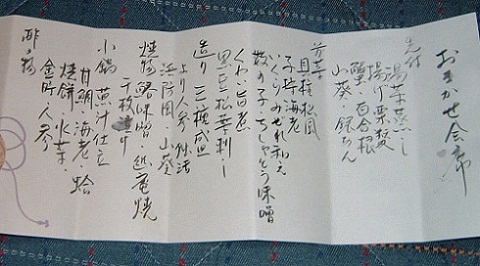 おまかせ会席
先付 湯葉蒸し
揚げ栗麩
蟹・百合根
山葵・銀あん
前菜 貝柱松風
子持海老
くらげみぞれ和え
数の子
味噌
くわい旨煮
黒豆松葉刺し
造り 三種盛
より人参
浜防風・山葵
焼物 味噌幽庵焼
千枚
小鍋 蕪汁仕立
甘鯛・海老・蛤
焼餅・水菜・
金時人参
酢の物